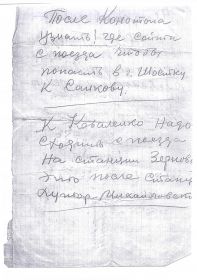 После Конотопа
Узнать! где сойти
с поезда чтобы
попасть в г. Шостку
К Сашкову.
К Коваленко Надо
сходить с поезда
на станции Зерново
это после станц
Хутор Михайловск